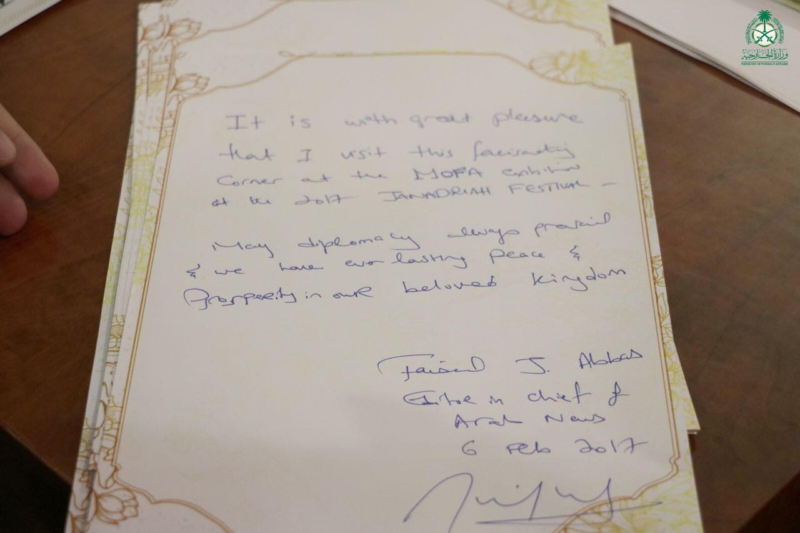 It is with great pleasure
that I visit this fascinating
corner at the MOFA exhibition
at the 2017 JANADRIAH FESTIVAL –
May diplomacy always prevail
& we have ever lasting peace &
Prosperity in our beloved Kingdom
Faisal J. Abbas
Editor in chief of
Arab News
6 Feb 2017
وزارة الخارجية
MINISTRY OF FOREIGN AFFAIRS